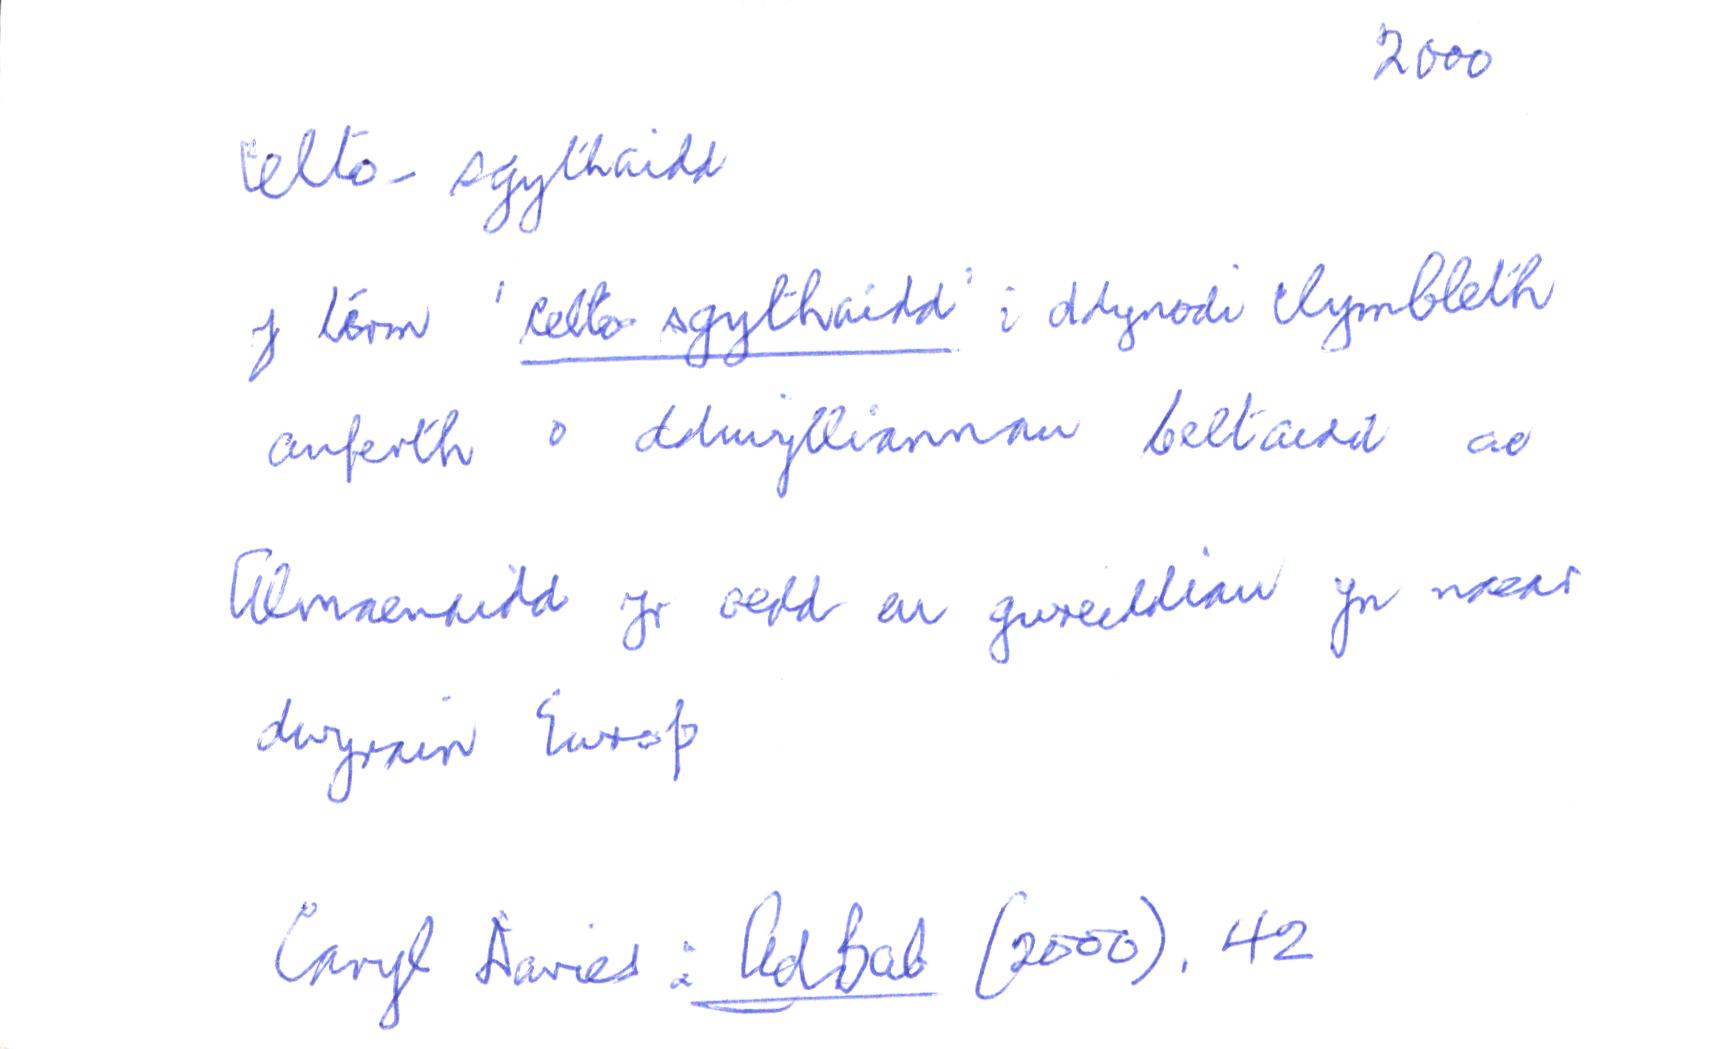 2000
celto-sgythaidd
y term 'celto-sgythaidd' i ddynodi clymbleth
anferth o ddiwylliannau Celtaidd ac
Almaenaidd yr oedd eu gwreiddiau yn naear
dwyrain Ewrop
Caryl Davies: AdBab (2000), 42